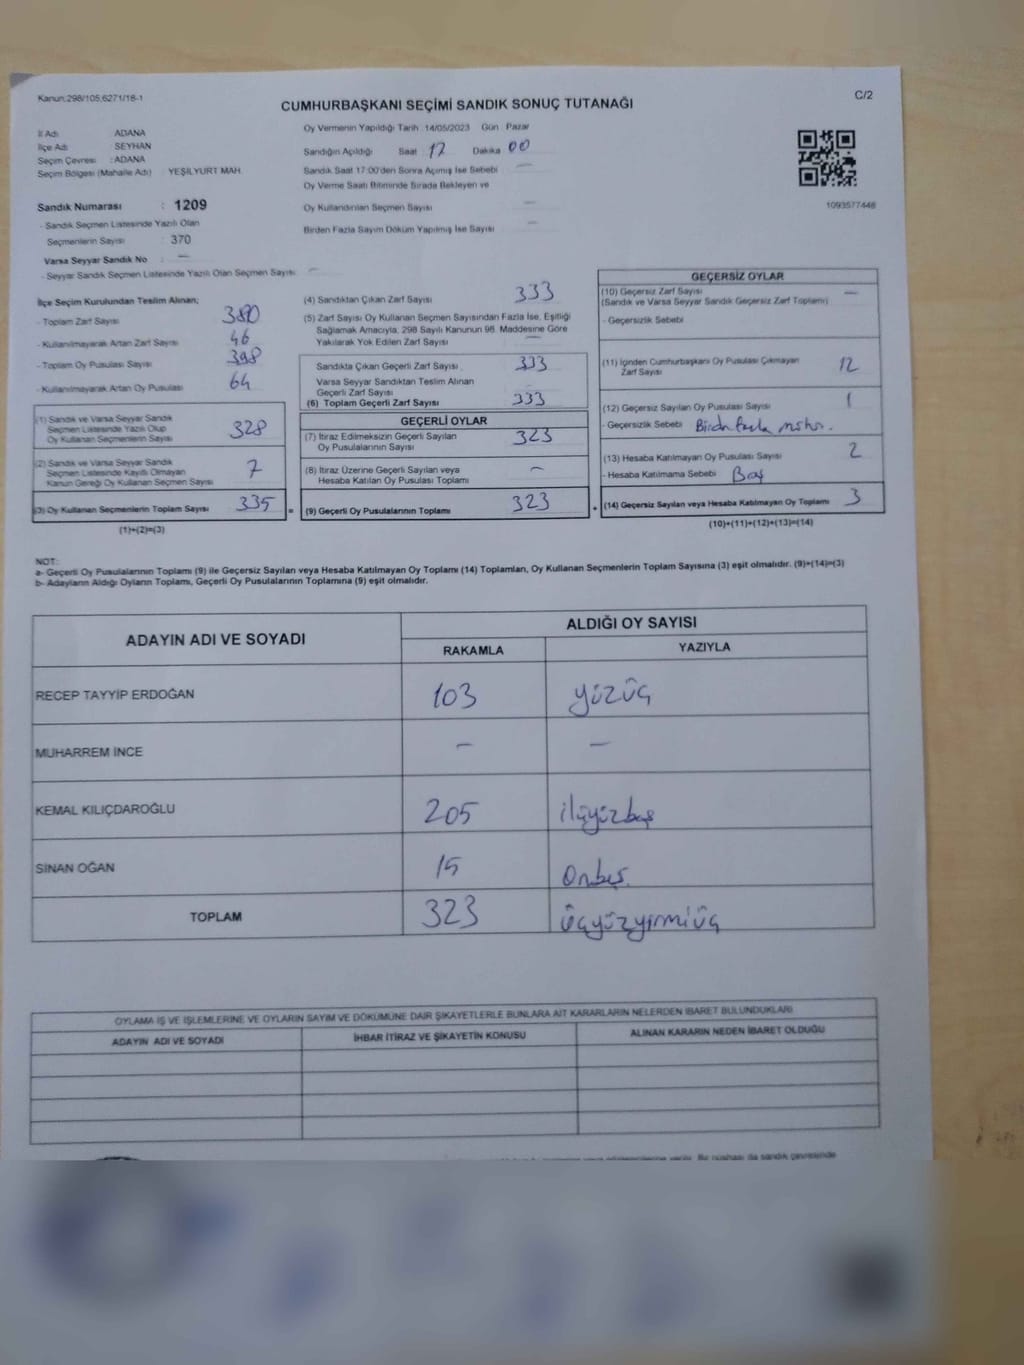 Kanun:298/105,6271/18-1
C/2
CUMHURBAŞKANI SEÇİMİ SANDIK SONUÇ TUTANAĞI
İl Adı ADANA
İlçe Adı SEYHAN
Seçim Çevresi : ADANA
Seçim Bölgesi (Mahalle Adı) YEŞİLYURT MAH.
Sandık Numarası : 1209
- Sandık Seçmen Listesinde Yazılı Olan
Seçmenlerin Sayısı 370
Varsa Seyyar Sandık No : —
- Seyyar Sandık Seçmen Listesinde Yazılı Olan Seçmen Sayısı —
Oy Vermenin Yapıldığı Tarih 14/05/2023 Gün Pazar
Sandığın Açıldığı Saat 17 Dakika 00
Sandık Saat 17:00'den Sonra Açılmış İse Sebebi —
Oy Verme Saati Bitiminde Sırada Bekleyen ve
Oy Kullandırılan Seçmen Sayısı —
Birden Fazla Sayım Döküm Yapılmış İse Sayısı —
1093577448
İlçe Seçim Kurulundan Teslim Alınan;
- Toplam Zarf Sayısı 380
- Kullanılmayarak Artan Zarf Sayısı 46
- Toplam Oy Pusulası Sayısı 398
- Kullanılmayarak Artan Oy Pusulası 64
(1) Sandık ve Varsa Seyyar Sandık
Seçmen Listesinde Yazılı Olup
Oy Kullanan Seçmenlerin Sayısı 328
(2) Sandık ve Varsa Seyyar Sandık
Seçmen Listesinde Kayıtlı Olmayan
Kanun Gereği Oy Kullanan Seçmen Sayısı 7
(3) Oy Kullanan Seçmenlerin Toplam Sayısı 335 =
(1)+(2)=(3)
(4) Sandıktan Çıkan Zarf Sayısı 333
(5) Zarf Sayısı Oy Kullanan Seçmen Sayısından Fazla İse, Eşitliği
Sağlamak Amacıyla, 298 Sayılı Kanunun 98. Maddesine Göre
Yakılarak Yok Edilen Zarf Sayısı —
Sandıkta Çıkan Geçerli Zarf Sayısı 333
Varsa Seyyar Sandıktan Teslim Alınan
Geçerli Zarf Sayısı
(6) Toplam Geçerli Zarf Sayısı 333
GEÇERLİ OYLAR
(7) İtiraz Edilmeksizin Geçerli Sayılan
Oy Pusulalarının Sayısı 323
(8) İtiraz Üzerine Geçerli Sayılan veya
Hesaba Katılan Oy Pusulası Toplamı —
(9) Geçerli Oy Pusulalarının Toplamı 323 +
GEÇERSİZ OYLAR
(10) Geçersiz Zarf Sayısı —
(Sandık ve Varsa Seyyar Sandık Geçersiz Zarf Toplamı)
- Geçersizlik Sebebi
(11) İçinden Cumhurbaşkanı Oy Pusulası Çıkmayan
Zarf Sayısı 12
(12) Geçersiz Sayılan Oy Pusulası Sayısı 1
- Geçersizlik Sebebi Birden fazla
(13) Hesaba Katılmayan Oy Pusulası Sayısı 2
- Hesaba Katılmama Sebebi Boş
(14) Geçersiz Sayılan veya Hesaba Katılmayan Oy Toplamı 3
(10)+(11)+(12)+(13)=(14)
NOT:
a- Geçerli Oy Pusulalarının Toplamı (9) ile Geçersiz Sayılan veya Hesaba Katılmayan Oy Toplamı (14) Toplamları, Oy Kullanan Seçmenlerin Toplam Sayısına (3) eşit olmalıdır. (9)+(14)=(3)
b- Adayların Aldığı Oyların Toplamı, Geçerli Oy Pusulalarının Toplamına (9) eşit olmalıdır.
ADAYIN ADI VE SOYADI ALDIĞI OY SAYISI
RAKAMLA YAZIYLA
RECEP TAYYİP ERDOĞAN 103 yüzüç
MUHARREM İNCE — —
KEMAL KILIÇDAROĞLU 205 ikiyüzbeş
SİNAN OĞAN 15 Onbeş
TOPLAM 323 üçyüzyirmiüç
OYLAMA İŞ VE İŞLEMLERİNE VE OYLARIN SAYIM VE DÖKÜMÜNE DAİR ŞİKAYETLERLE BUNLARA AİT KARARLARIN NELERDEN İBARET BULUNDUKLARI
ADAYIN ADI VE SOYADI İHBAR İTİRAZ VE ŞİKAYETİN KONUSU ALINAN KARARIN NEDEN İBARET OLDUĞU
Bir nüshası da sandık çevresinde